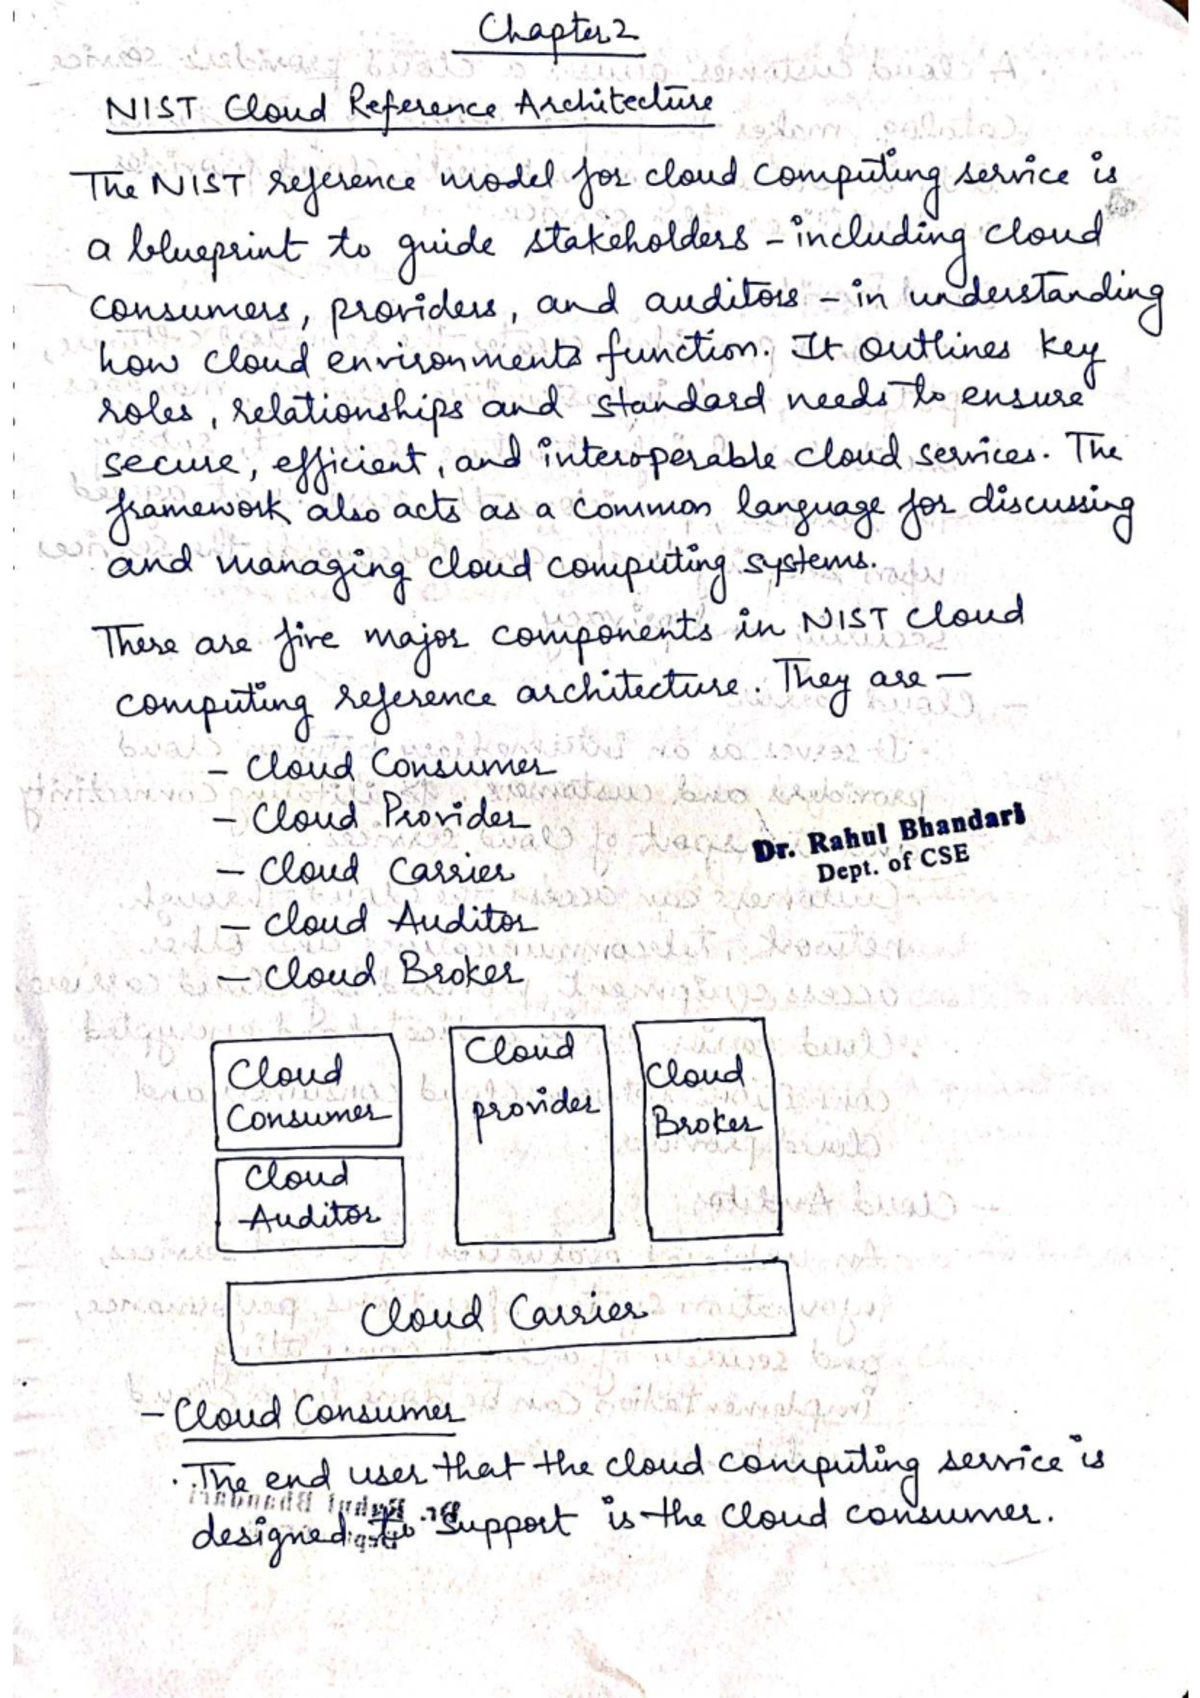 Chapter 2
NIST Cloud Reference Architecture
The NIST reference model for cloud computing service is
a blueprint to guide stakeholders - including cloud
consumers, providers, and auditors - in understanding
how cloud environments function. It outlines key
roles, relationships and standard needs to ensure
secure, efficient, and interoperable cloud services. The
framework also acts as a common language for discussing
and managing cloud computing systems.
There are five major components in NIST cloud
computing reference architecture. They are —
- Cloud Consumer
- Cloud Provider
- Cloud Carrier
- Cloud Auditor
- Cloud Broker
Dr. Rahul Bhandari
Dept. of CSE
Cloud
Consumer
Cloud
Auditor
Cloud
provider
Cloud
Broker
Cloud Carrier
- Cloud Consumer
. The end user that the cloud computing service is
designed to support is the cloud consumer.